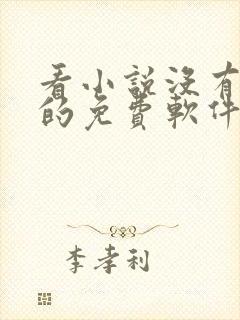 看小說沒有
的免費軟件
李孝利